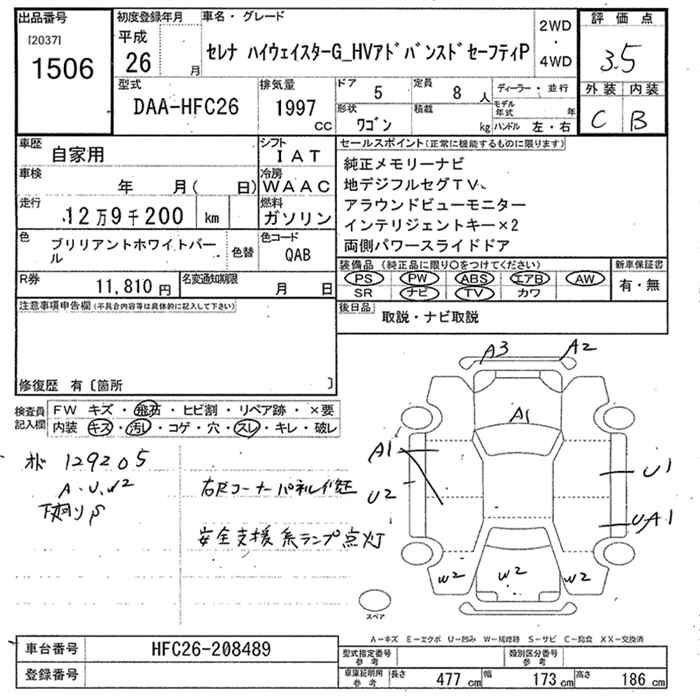 出品番号
[2037]
1506
初度登録年月
平成
26 月
車名・グレード
セレナ ハイウェイスターG_HVアドバンスドセーフティP
2WD
・
4WD
評価点
3.5
外装 内装
C B
型式
DAA-HFC26
排気量
1997
cc
ドア
5
定員
8 人
形状
ワゴン
積載
kg
ディーラー・並行
モデル年式 年
ハンドル 左・右
車歴
自家用
シフト
IAT
車検
年 月( 日)
冷房
WAAC
走行
12万9千200 km
燃料
ガソリン
色
ブリリアントホワイトパール
色替
色コード
QAB
R券
11,810 円
名変通知期限
月 日
セールスポイント(正常に機能するものに限ります)
純正メモリーナビ
地デジフルセグTV、
アラウンドビューモニター
インテリジェントキー×2
両側パワースライドドア
装備品(純正品に限り○をつけてください)
PS PW ABS エアB AW
SR ナビ TV カワ
新車保証書
有・無
後日品
取説・ナビ取説
注意事項申告欄(不具合内容等は具体的に記入して下さい)
修復歴 有〔箇所 〕
検査員
記入欄
FW キズ・飛石・ヒビ割・リペア跡・×要
内装 キズ・汚レ・コゲ・穴・スレ・キレ・破レ
129205
A.U.W2
下廻りS
右Rコーナーパネル修正
安全支援系ランプ点灯
A3
A2
A1
A1
U2
U1
UA1
W2
W2
W2
スペア
A-キズ E-エクボ U-凹み W-補修跡 S-サビ C-腐食 XX-交換済
車台番号
HFC26-208489
登録番号
型式指定番号
参考
類別区分番号
参考
車庫証明用
参考
長さ 477 cm
幅 173 cm
高さ 186 cm